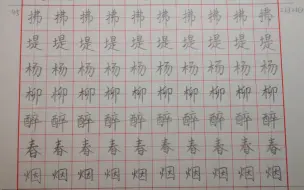 拂 拂 拂 拂 拂 拂 拂 拂 拂 拂
堤 堤 堤 堤 堤 堤 堤 堤 堤 堤
杨 杨 杨 杨 杨 杨 杨 杨 杨 杨
柳 柳 柳 柳 柳 柳 柳 柳 柳 柳
醉 醉 醉 醉 醉 醉 醉 醉 醉 醉
春 春 春 春 春 春 春 春 春 春
烟 烟 烟 烟 烟 烟 烟 烟 烟 烟